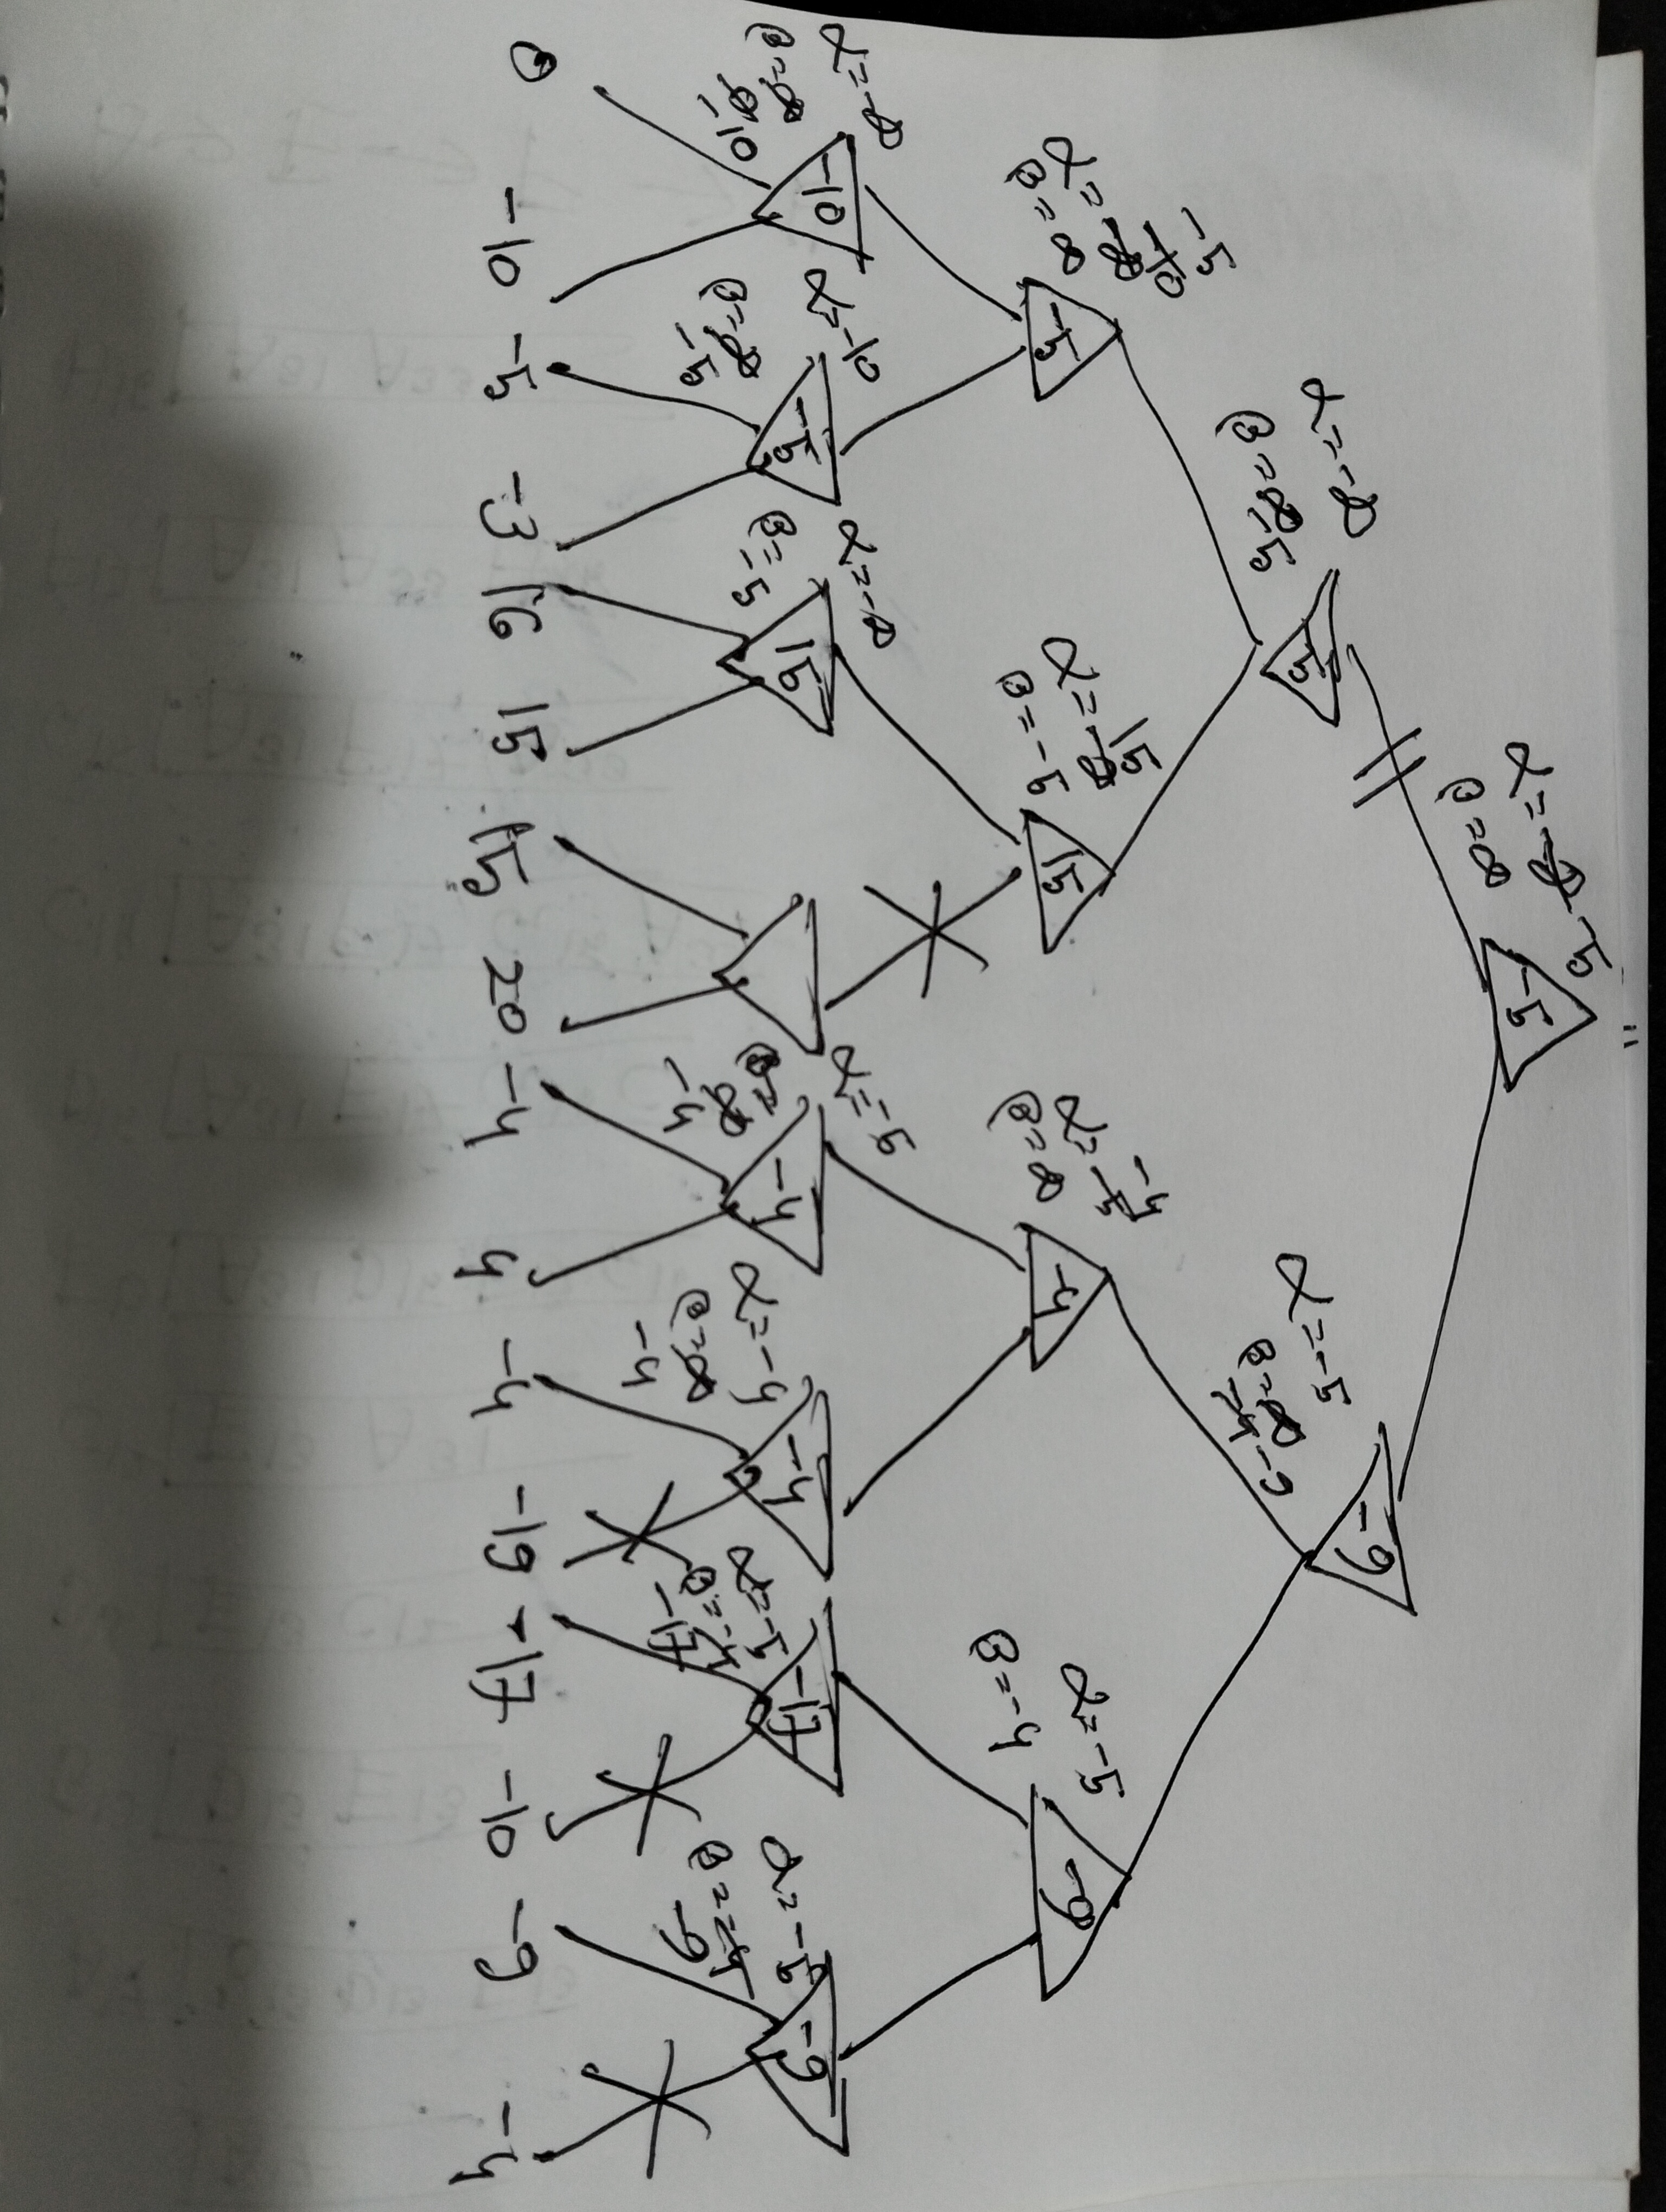 α=-∞ -5
β=∞
-5
α=-∞
β=∞ -5
-5
α=-5
β=∞ -4 -6
-6
α=-∞ -10 -5
β=∞
-5
α=-∞ 15
β=-5
15
α=-5 -4
β=∞
-4
α=-5
β=-4
-6
α=-∞
β=∞ 0 -10
-10
α=-10
β=∞ -5
-5
α=-∞
β=-5
15
α=-5
β=∞ -4
-4
α=-4
β=∞ -4
-4
α=-5
β=-4 -17
-17
α=-5
β=-4 -6
-6
0 -10 -5 -3 16 15 15 20 -4 4 -4 -19 -17 -10 -6 -4